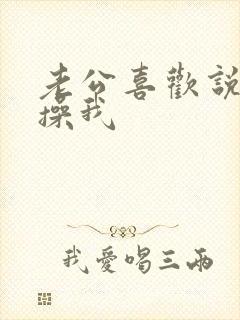 老公喜歡說
操我
我愛唱三兩